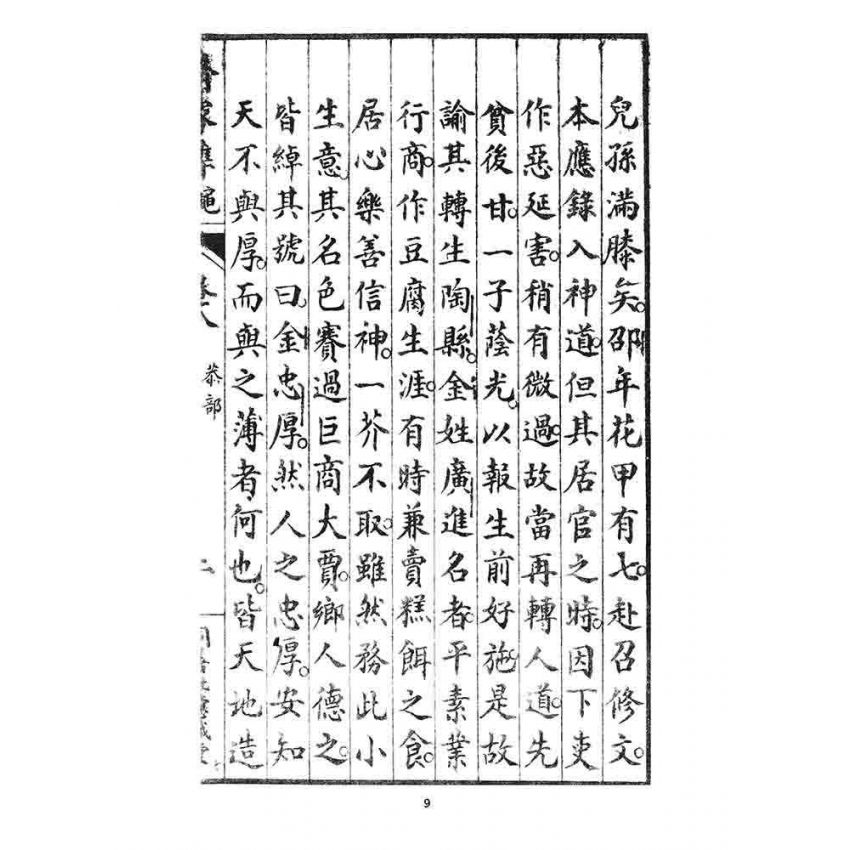 兒孫滿膝矣。邵年花甲有七。赴召修文。
本應錄入神道。但其居官之時。因下吏
作惡延害。稍有微過。故當再轉人道。先
貧後甘。一子蔭光。以報生前好施。是故
諭其轉生陶縣。金姓廣進名者。平素業
行商。作豆腐生涯。有時兼賣糕餌之食。
居心樂善信神。一芥不取。雖然務此小
生意。其名色賽過巨商大賈。鄉人德之。
皆綽其號曰。金忠厚。然人之忠厚。安知
天不與厚。而與之薄者何也。皆天地造
卷八
恭部
9